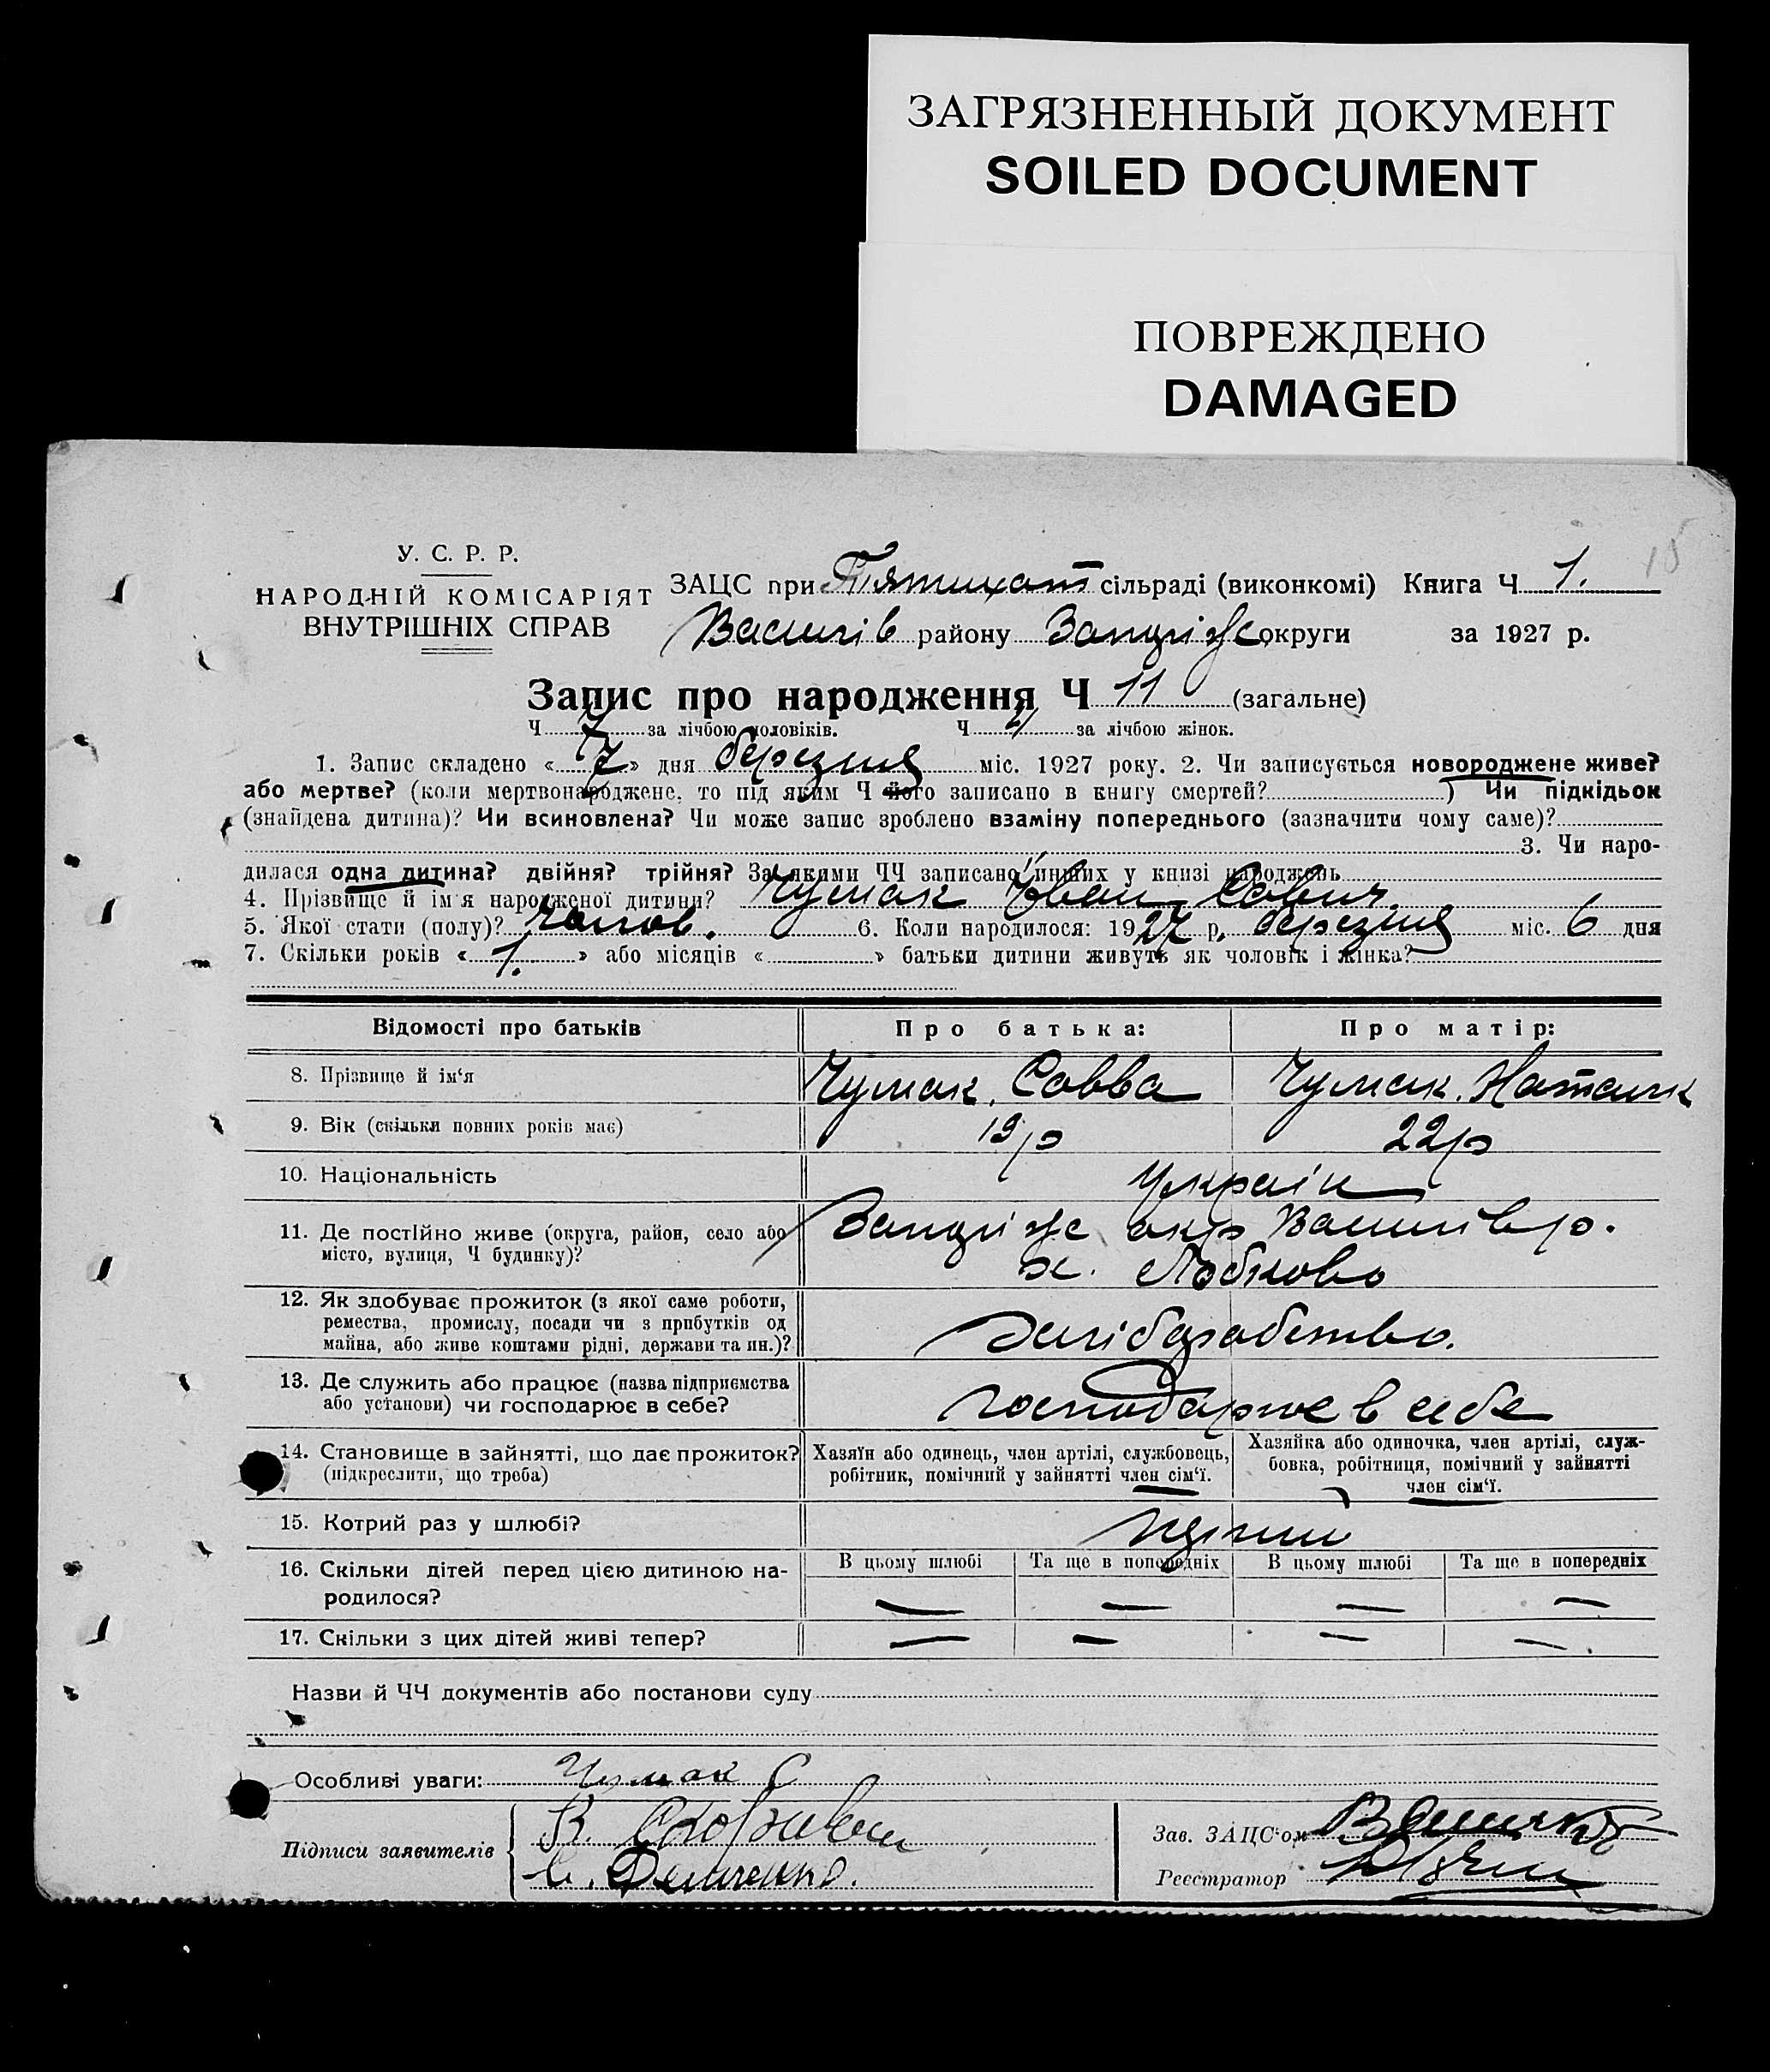 ЗАГРЯЗНЕННЫЙ ДОКУМЕНТ
SOILED DOCUMENT
ПОВРЕЖДЕНО
DAMAGED
15
У. С. Р. Р.
НАРОДНІЙ КОМІСАРІЯТ
ВНУТРІШНІХ СПРАВ
ЗАЦС при Пятихат сільраді (виконкомі) Книга Ч 1.
Василів району Запоріж округи за 1927 р.
Запис про народження Ч 11 (загальне)
Ч 7 за лічбою чоловіків. Ч 4 за лічбою жінок.
1. Запис складено « 7 » дня березня міс. 1927 року. 2. Чи записується новороджене живе?
або мертве? (коли мертвонароджене, то під яким Ч його записано в книгу смертей? ) Чи підкідьок
(знайдена дитина)? Чи всиновлена? Чи може запис зроблено взаміну попереднього (зазначити чому саме)?
3. Чи наро-
дилася одна дитина? двійня? трійня? За якими ЧЧ записано инших у книзі народжень
4. Прізвище й ім'я народженої дитини? Чумак Іван Савич.
5. Якої стати (полу)? чолов. 6. Коли народилося: 1927 р. березня міс. 6 дня
7. Скільки років « 1. » або місяців « » батьки дитини живуть як чоловік і жінка?
Відомості про батьків Про батька: Про матір:
8. Прізвище й ім'я Чумак, Савва Чумак, Наталк
9. Вік (скільки повних років має) 19 р 22 р
10. Національність Україн
11. Де постійно живе (округа, район, село або Запоріж окр Василів р.
місто, вулиця, Ч будинку)? х.
12. Як здобуває прожиток (з якої саме роботи,
ремества, промислу, посади чи з прибутків од
майна, або живе коштами рідні, держави та ин.)? Хліборобство.
13. Де служить або працює (назва підприємства
або установи) чи господарює в себе? господарює в себе
14. Становище в зайнятті, що дає прожиток? Хазяїн або одинець, член артілі, службовець, Хазяйка або одиночка, член артілі, служ-
(підкреслити, що треба) робітник, помічний у зайнятті член сім'ї. бовка, робітниця, помічний у зайнятті
член сім'ї.
15. Котрий раз у шлюбі?
16. Скільки дітей перед цією дитиною на- В цьому шлюбі Та ще в попередніх В цьому шлюбі Та ще в попередніх
родилося? — — — —
17. Скільки з цих дітей живі тепер? — — — —
Назви й ЧЧ документів або постанови суду
Особливі уваги: Чумак С
Підписи заявителів В.
С. Демченко.
Зав. ЗАЦС'ом
Реєстратор